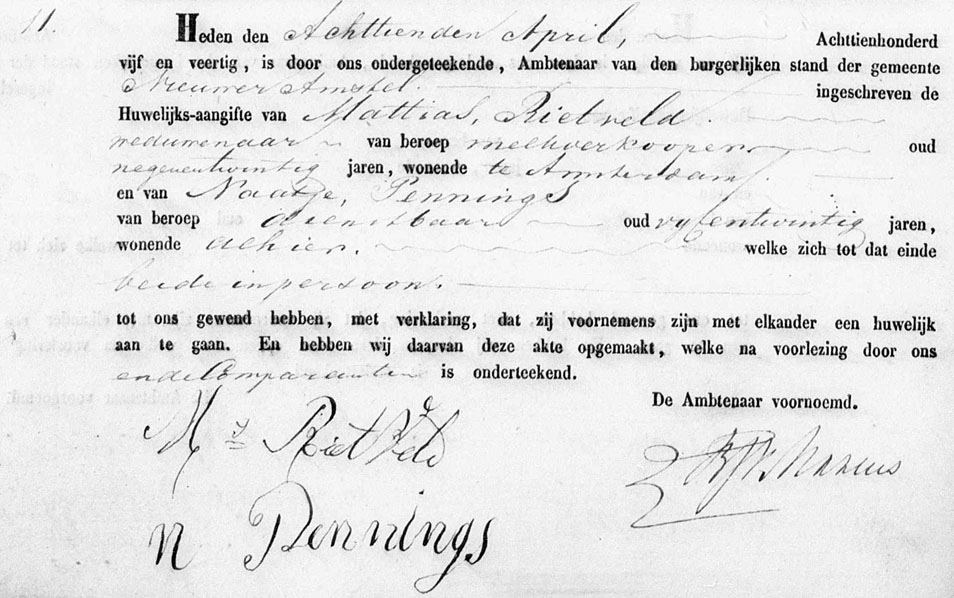 11.
Heden den Achttienden April, Achttienhonderd
vijf en veertig, is door ons ondergeteekende, Ambtenaar van den burgerlijken stand der gemeente
Nieuwer Amstel. ingeschreven de
Huwelijks-aangifte van Mattias, Rietveld.
weduwenaar van beroep melkverkooper oud
negenentwintig jaren, wonende te Amsterdam,
en van Naatje, Pennings
van beroep dienstbaar oud vyfentwintig jaren,
wonende alhier. welke zich tot dat einde
beide in persoon.
tot ons gewend hebben, met verklaring, dat zij voornemens zijn met elkander een huwelijk
aan te gaan. En hebben wij daarvan deze akte opgemaakt, welke na voorlezing door ons
en de Comparanten is onderteekend.
De Ambtenaar voornoemd.
Ms Rietveld
n Pennings